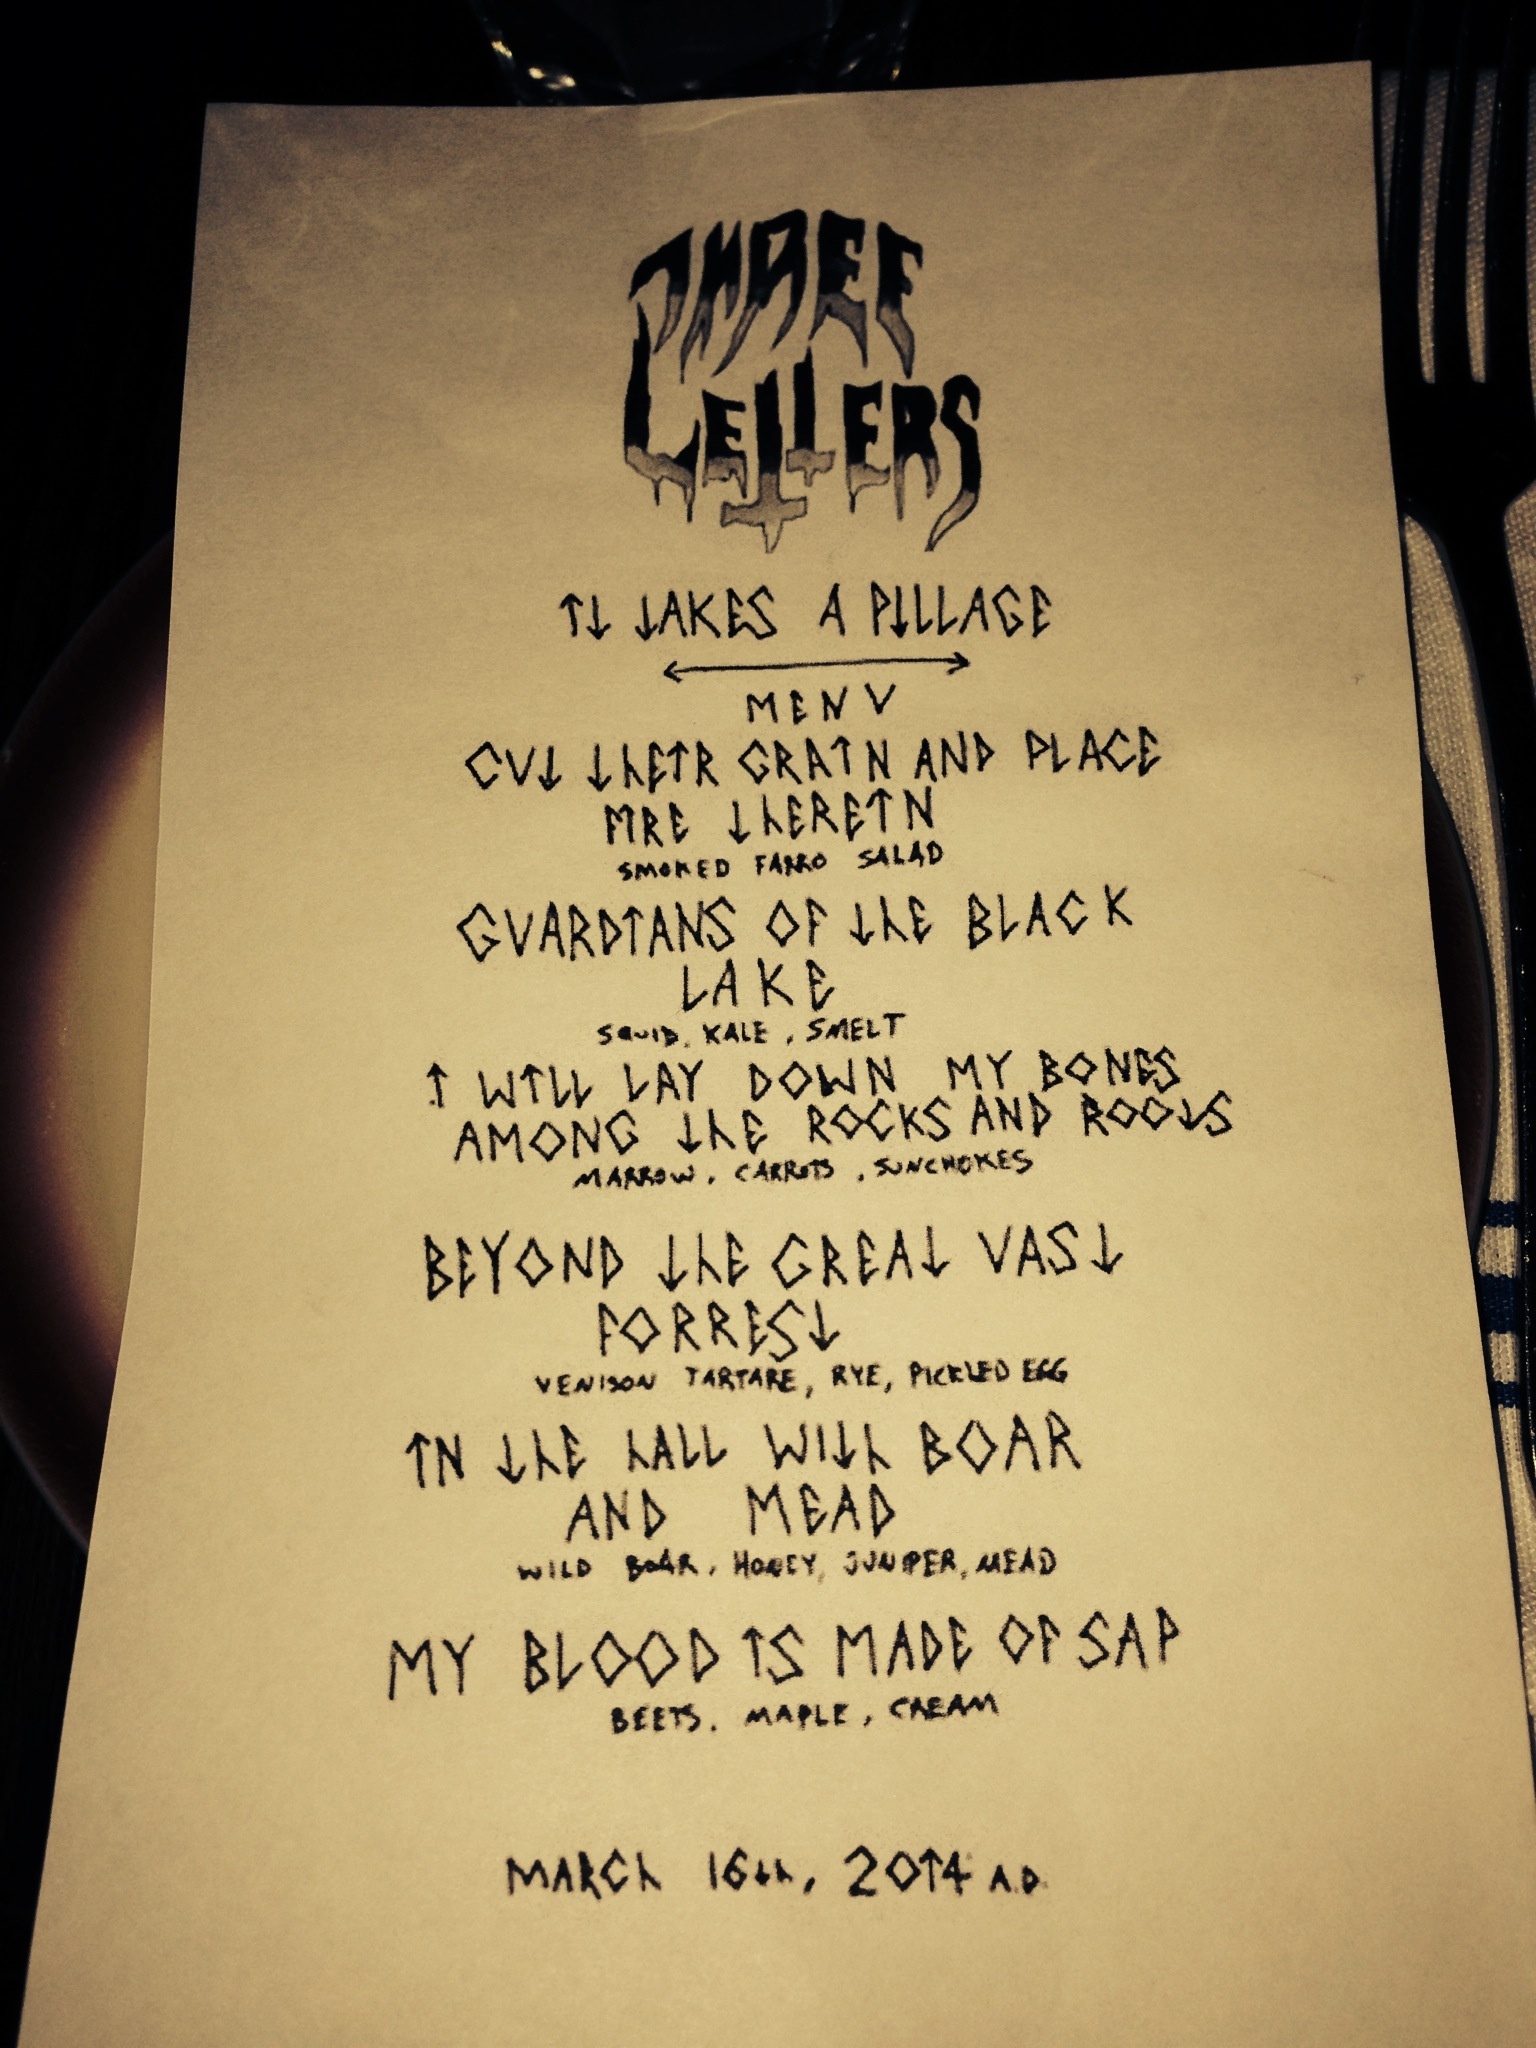 THREE
LETTERS
IT TAKES A PILLAGE
MENU
CUT THEIR GRAIN AND PLACE
FIRE THEREIN
SMOKED FARRO SALAD
GUARDIANS OF THE BLACK
LAKE
SQUID, KALE, SMELT
I WILL LAY DOWN MY BONES
AMONG THE ROCKS AND ROOTS
MARROW, CARROTS, SUNCHOKES
BEYOND THE GREAT VAST
FORREST
VENISON TARTARE, RYE, PICKLED EGG
IN THE HALL WITH BOAR
AND MEAD
WILD BOAR, HONEY, JUNIPER, MEAD
MY BLOOD IS MADE OF SAP
BEETS, MAPLE, CREAM
MARCH 16th, 2014 A.D.